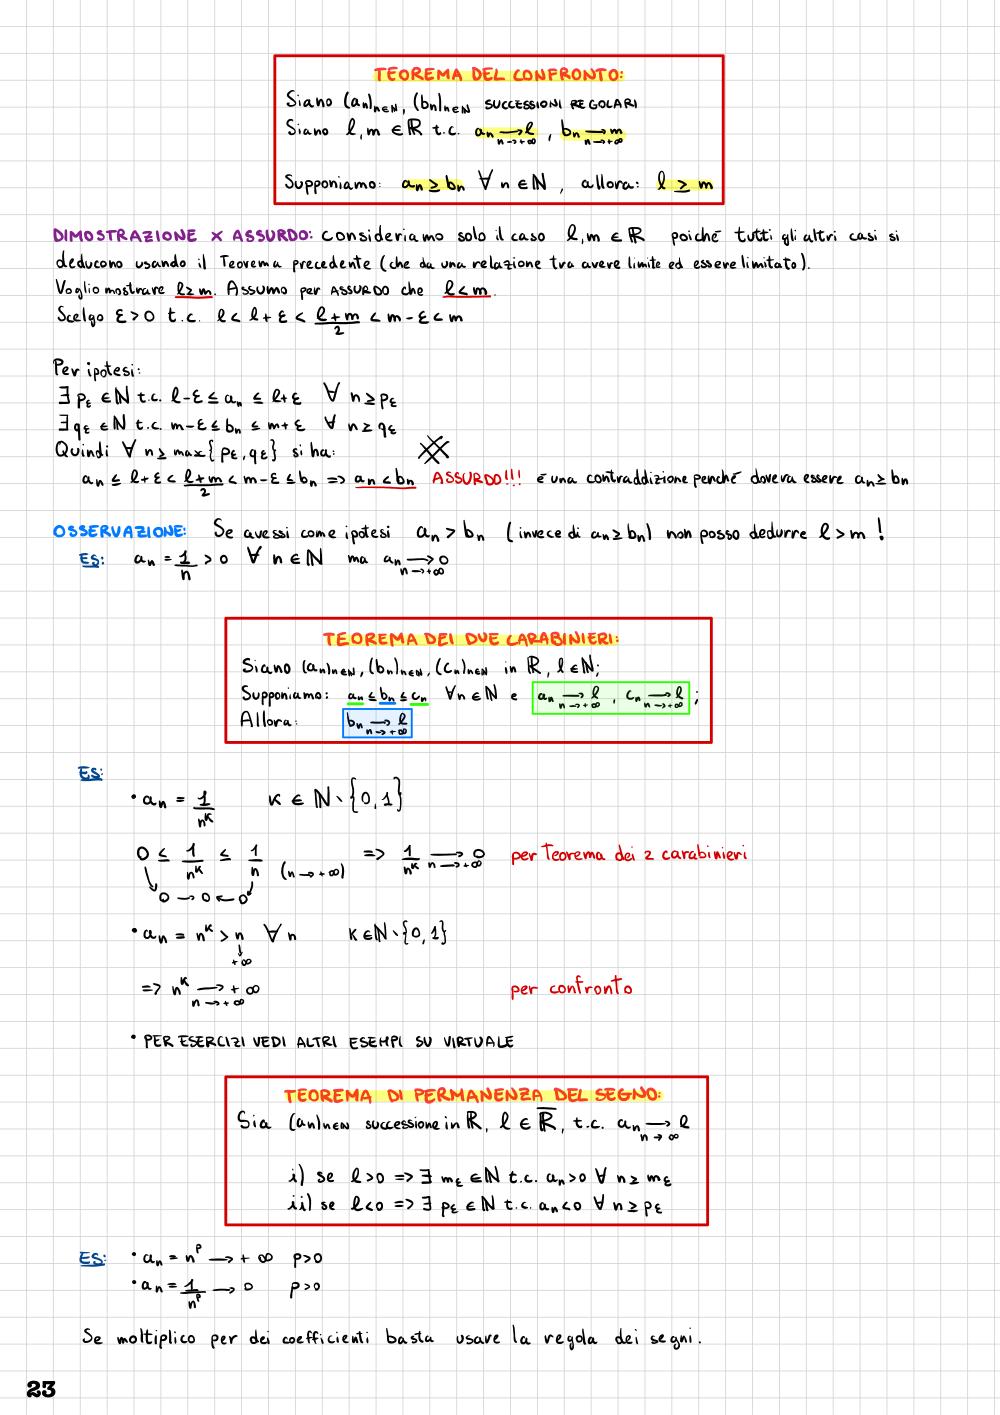 TEOREMA DEL CONFRONTO:
Siano (an)n∈N, (bn)n∈N SUCCESSIONI REGOLARI
Siano l, m ∈ ℝ t.c. an ⟶ l n→+∞ , bn ⟶ m n→+∞
Supponiamo: an ≥ bn ∀ n ∈ ℕ , allora: l ≥ m
DIMOSTRAZIONE x ASSURDO: consideriamo solo il caso l, m ∈ ℝ poiché tutti gli altri casi si
deducono usando il Teorema precedente (che da una relazione tra avere limite ed essere limitato).
Voglio mostrare l ≥ m. Assumo per ASSURDO che l < m.
Scelgo ε > 0 t.c. l < l + ε < (l+m)/2 < m - ε < m
Per ipotesi:
∃ pε ∈ ℕ t.c. l - ε ≤ an ≤ l + ε ∀ n ≥ pε
∃ qε ∈ ℕ t.c. m - ε ≤ bn ≤ m + ε ∀ n ≥ qε
Quindi ∀ n ≥ max{pε, qε} si ha:
an ≤ l + ε < (l+m)/2 < m - ε ≤ bn => an < bn ASSURDO!!! è una contraddizione perché doveva essere an ≥ bn
OSSERVAZIONE: Se avessi come ipotesi an > bn (invece di an ≥ bn) non posso dedurre l > m !
ES: an = 1/n > 0 ∀ n ∈ ℕ ma an ⟶ 0 n→+∞
TEOREMA DEI DUE CARABINIERI:
Siano (an)n∈N, (bn)n∈N, (cn)n∈N in ℝ, l ∈ ℕ;
Supponiamo: an ≤ bn ≤ cn ∀n ∈ ℕ e an ⟶ l n→+∞ , cn ⟶ l n→+∞ ;
Allora: bn ⟶ l n→+∞
ES:
• an = 1/n^k k ∈ ℕ∖{0,1}
0 ≤ 1/n^k ≤ 1/n (n→+∞) => 1/n^k ⟶ 0 n→+∞ per Teorema dei 2 carabinieri
0 → 0 ← 0
• an = n^k > n ∀ n k ∈ ℕ∖{0,1}
↓
+∞
=> n^k ⟶ +∞ n→+∞ per confronto
• PER ESERCIZI VEDI ALTRI ESEMPI SU VIRTUALE
TEOREMA DI PERMANENZA DEL SEGNO:
Sia (an)n∈N successione in ℝ, l ∈ ℝ̅, t.c. an ⟶ l n→∞
i) se l>0 => ∃ mε ∈ ℕ t.c. an>0 ∀ n ≥ mε
ii) se l<0 => ∃ pε ∈ ℕ t.c. an<0 ∀ n ≥ pε
ES: • an = n^p ⟶ +∞ p>0
• an = 1/n^p ⟶ 0 p>0
Se moltiplico per dei coefficienti basta usare la regola dei segni.
23